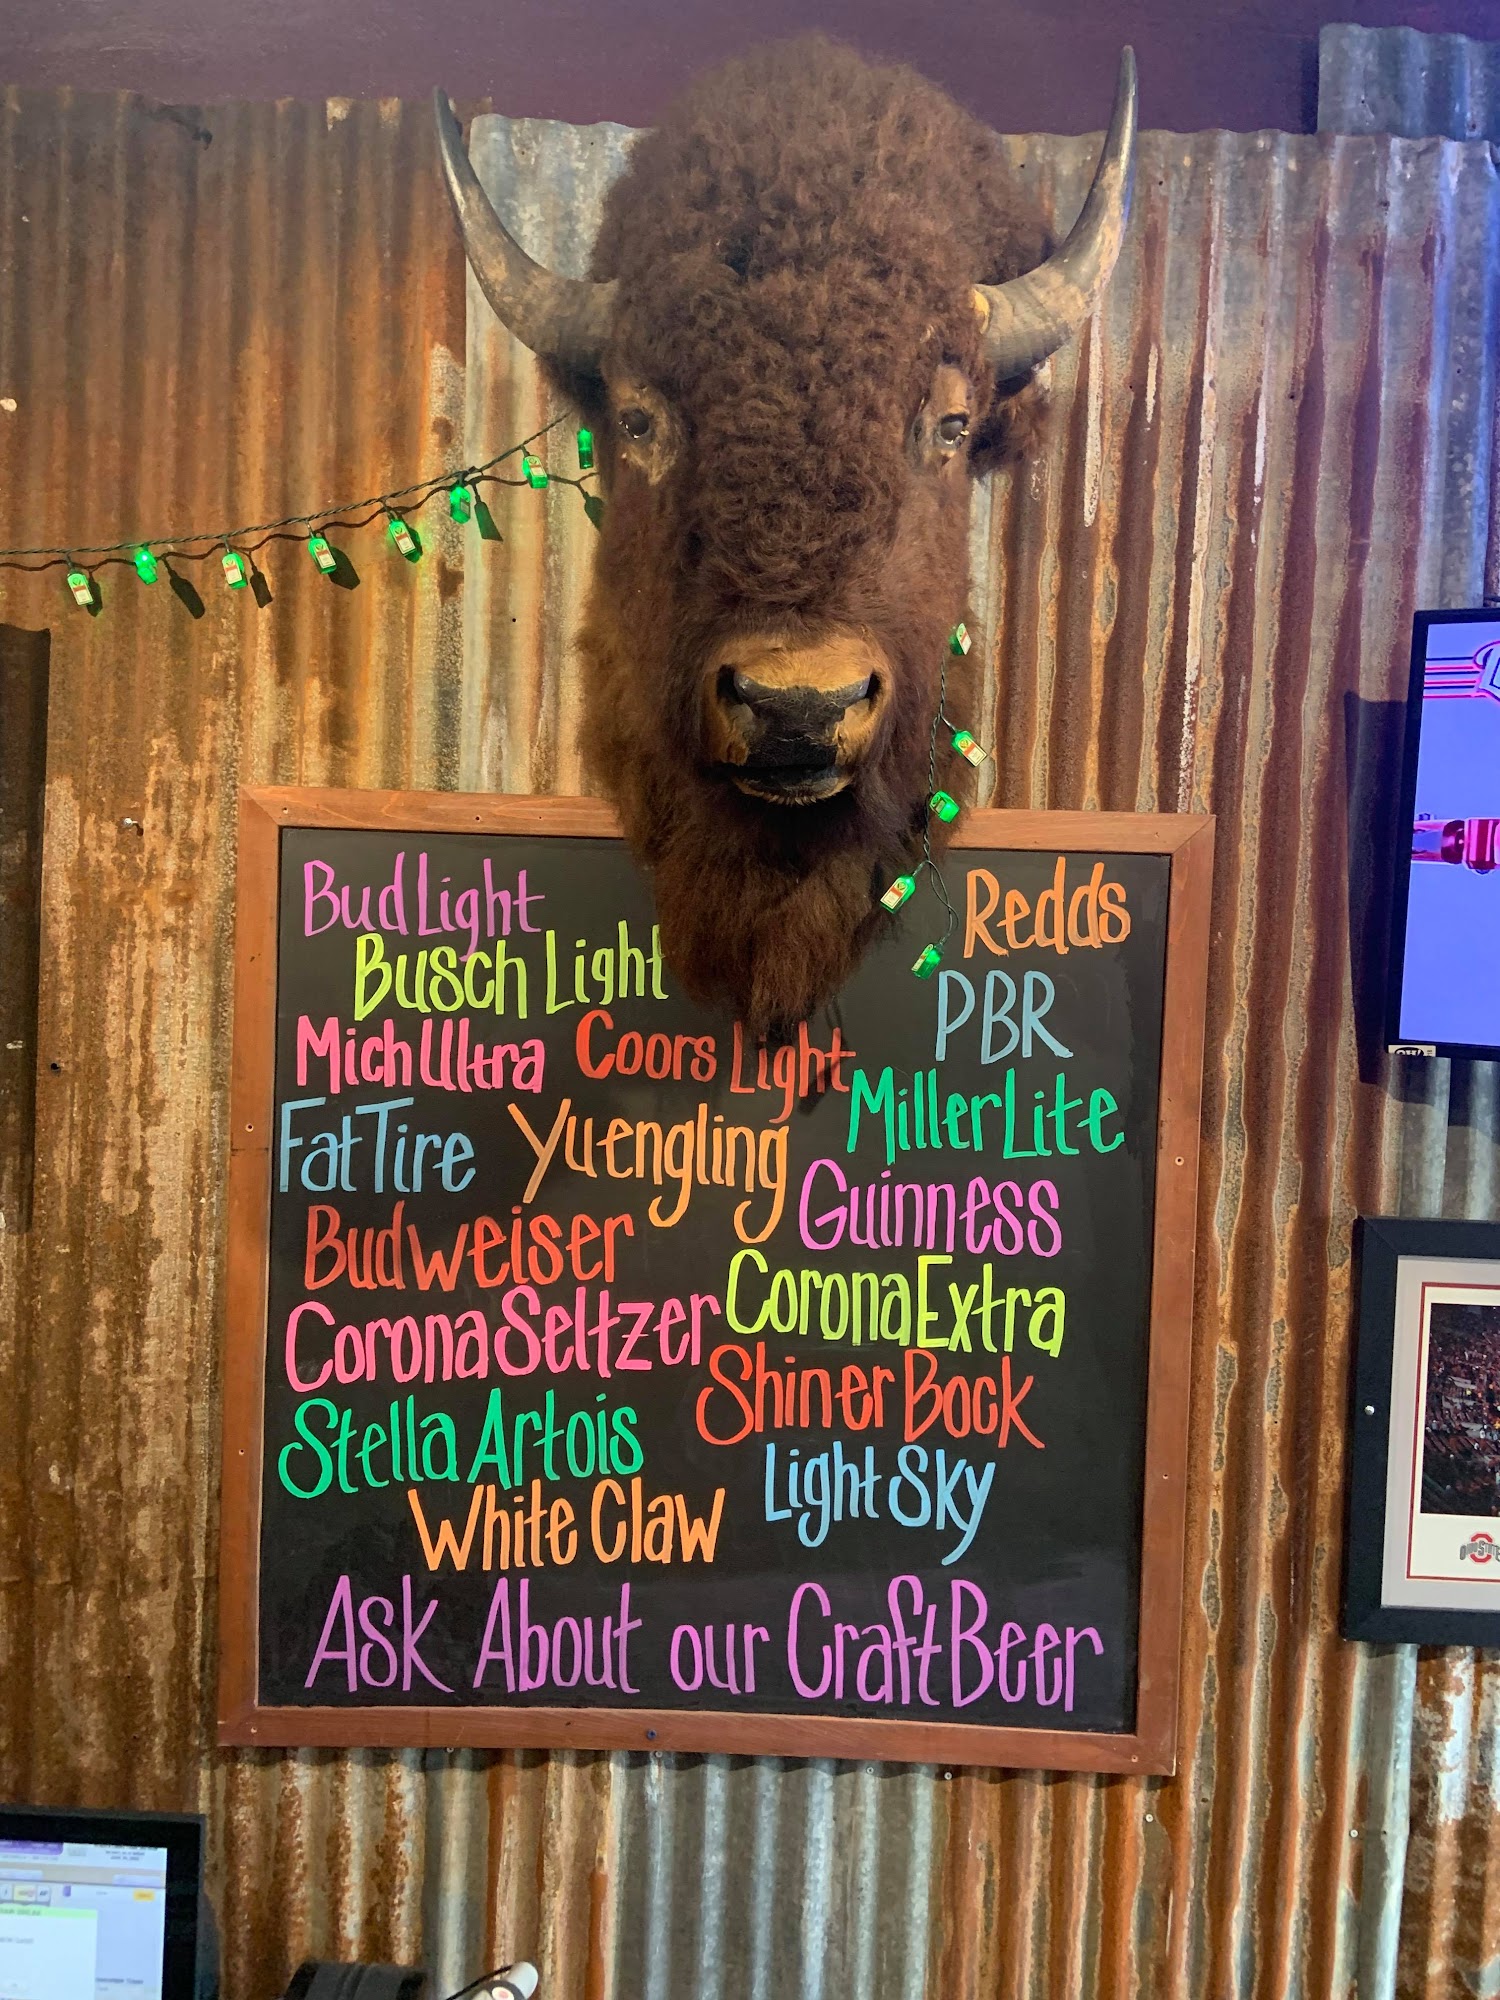 Bud Light
Redds
Busch Light
PBR
Mich Ultra Coors Light
Miller Lite
Fat Tire Yuengling
Guinness
Budweiser
Corona Extra
Corona Seltzer
Shiner Bock
Stella Artois
Light Sky
White Claw
Ask About our Craft Beer